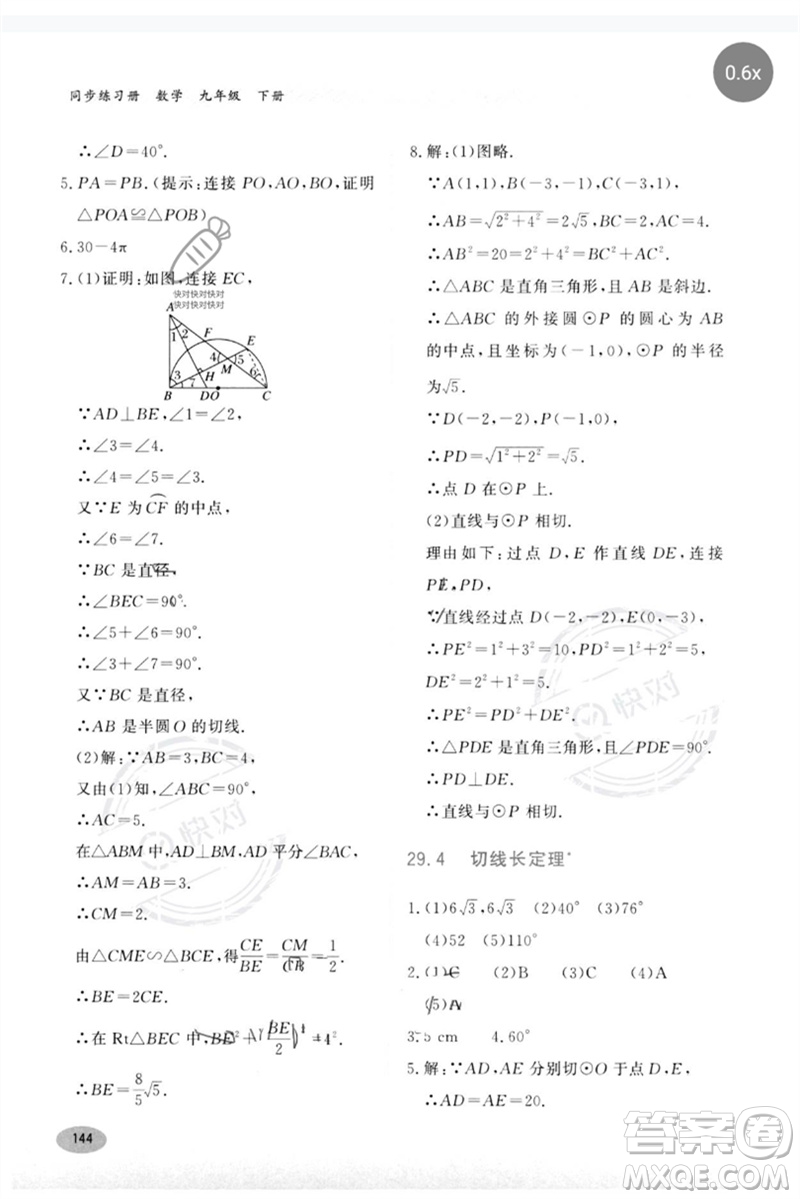 0.6x
同步练习册 数学 九年级 下册
∴∠D=40°.
5.PA=PB.(提示:连接 PO,AO,BO,证明
△POA≌△POB)
6.30-4π
7.(1)证明:如图,连接 EC,
快对快对快对
快对快对快对
A
1 2 F E
4 5
M
3 H 6
7
B D O C
∵AD⊥BE,∠1=∠2,
∴∠3=∠4.
∴∠4=∠5=∠3.
又∵E 为 CF 的中点,
∴∠6=∠7.
∵BC 是直径,
∴∠BEC=90°.
∴∠5+∠6=90°.
∴∠3+∠7=90°.
又∵BC 是直径,
∴AB 是半圆 O 的切线.
(2)解:∵AB=3,BC=4,
又由(1)知,∠ABC=90°,
∴AC=5.
在△ABM 中,AD⊥BM,AD 平分∠BAC,
∴AM=AB=3.
∴CM=2.
由△CME∽△BCE,得CE/BE=CM/=1/2.
∴BE=2CE.
∴在 Rt△BEC 中,BE²+(BE/2)=4².
∴BE=8/5√5.
144
8.解:(1)图略.
∵A(1,1),B(-3,-1),C(-3,1),
∴AB=√2²+4²=2√5,BC=2,AC=4.
∴AB²=20=2²+4²=BC²+AC².
∴△ABC 是直角三角形,且 AB 是斜边.
∴△ABC 的外接圆⊙P 的圆心为 AB
的中点,且坐标为(-1,0),⊙P 的半径
为√5.
∵D(-2,-2),P(-1,0),
∴PD=√1²+2²=√5.
∴点 D 在⊙P 上.
(2)直线与⊙P 相切.
理由如下:过点 D,E 作直线 DE,连接
PE,PD.
∵直线经过点 D(-2,-2),E(0,-3),
∴PE²=1²+3²=10,PD²=1²+2²=5,
DE²=2²+1²=5.
∴PE²=PD²+DE².
∴△PDE 是直角三角形,且∠PDE=90°.
∴PD⊥DE.
∴直线与⊙P 相切.
29.4 切线长定理*
1.(1)6√3,6√3 (2)40° (3)76°
(4)52 (5)110°
2.(1)C (2)B (3)C (4)A
(5)A
3.5 cm 4.60°
5.解:∵AD,AE 分别切⊙O 于点 D,E,
∴AD=AE=20.
快对
快对
答案卷
MXQE.COM